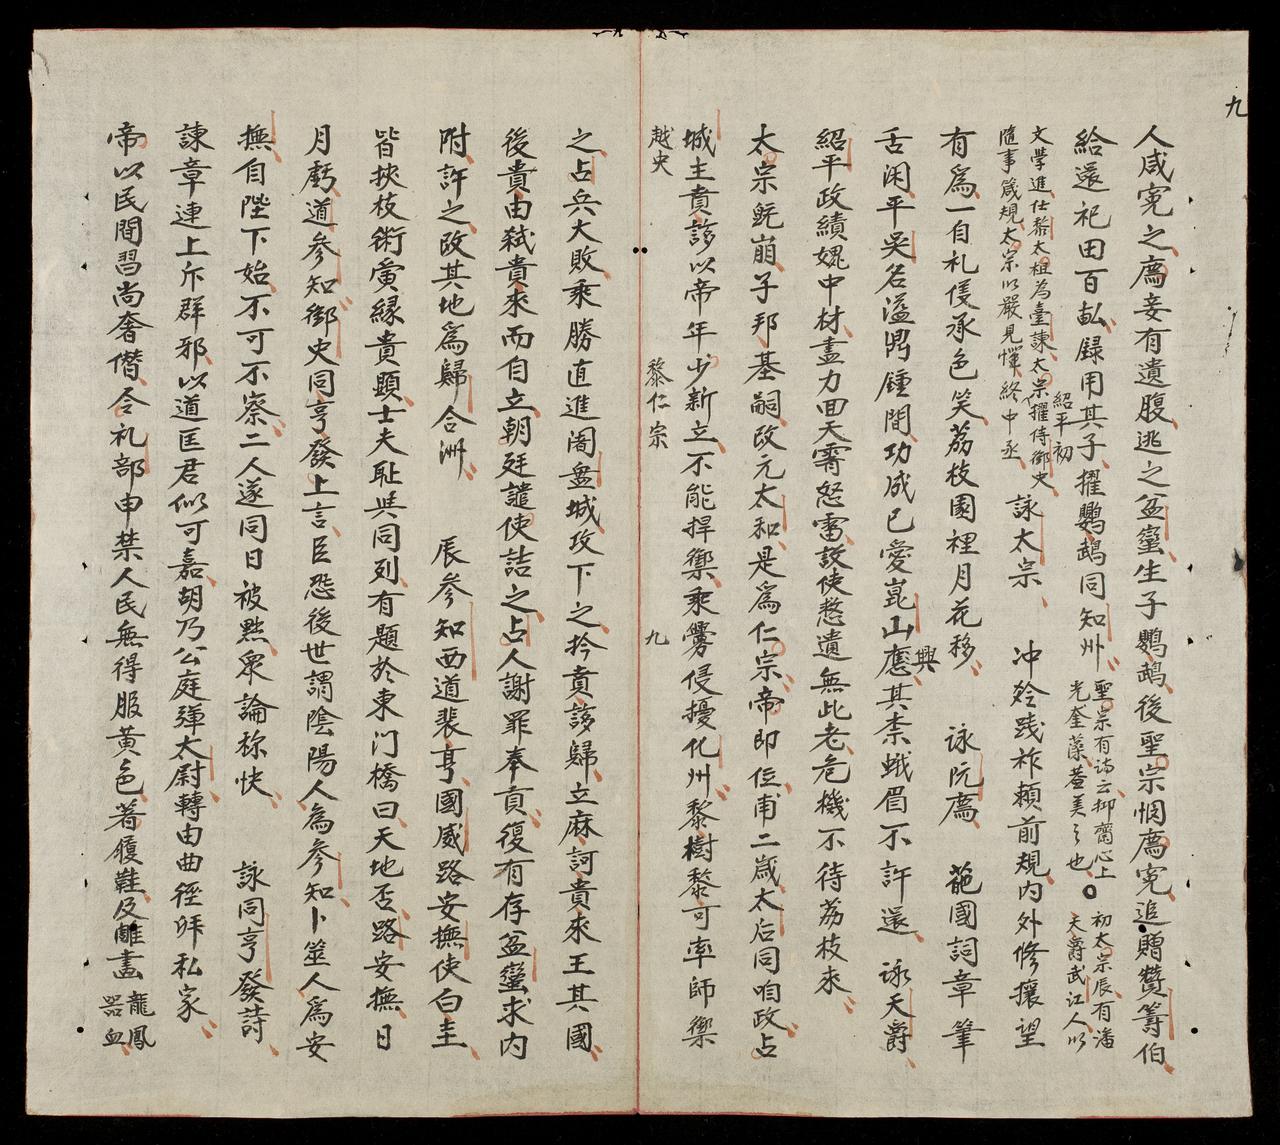 九
人咸寃之廌妾有遺腹逃之盆蠻生子鸚鵡後聖宗悯廌寃追贈贊籌伯
給還祀田百畝録用其子擢鸚鵡同知州
聖宗有詩云抑齋心上
光奎藻蓋美之也
初太宗辰有潘
天爵武江人以
文學進仕黎太祖为臺諫太宗擢侍御史
紹平初
隨事箴規太宗以嚴見憚終中丞
詠太宗 冲齡践祚頼前規内外修攘望
有爲一自札僊承色笑荔枝園裡月花移 詠阮廌 葩國詞章筆
舌闲平吳名溢鼎鍾間功成已愛崑山興應其柰蛾眉不許還 詠天爵
紹平政績媲中材盡力回天霽怒雷設使憗遺無此老危機不待荔枝来
太宗旣崩子邦基嗣改元太和是爲仁宗帝即位甫二歲太后同听政占
城主賁該以帝年少新立不能捍禦乘釁侵擾化州黎樹黎可率師禦
越史 黎仁宗 九
之占兵大敗乘勝直進阇盘城攻下之扲賁該歸立麻訶貴來王其國
後貴由弑貴來而自立朝廷譴使詰之占人謝罪奉貢復有存盆蠻求内
附許之改其地爲歸合洲 辰參知西道裴亨國威路安撫使白圭
皆挾枝術夤縁貴顯士夫耻與同列有題於東门橋曰天地否路安撫日
月虧道參知御史同亨發上言臣恐後世謂陰陽人為參知卜筮人爲安
撫自陛下始不可不察二人遂同日被黜衆論称快 詠同亨發詩
諫章連上斥群邪以道匡君似可嘉胡乃公庭彈太尉轉由曲徑拜私家
帝以民間習尚奢僭令礼部申禁人民無得服黄色著履鞋及雕畫
龍鳳
器血